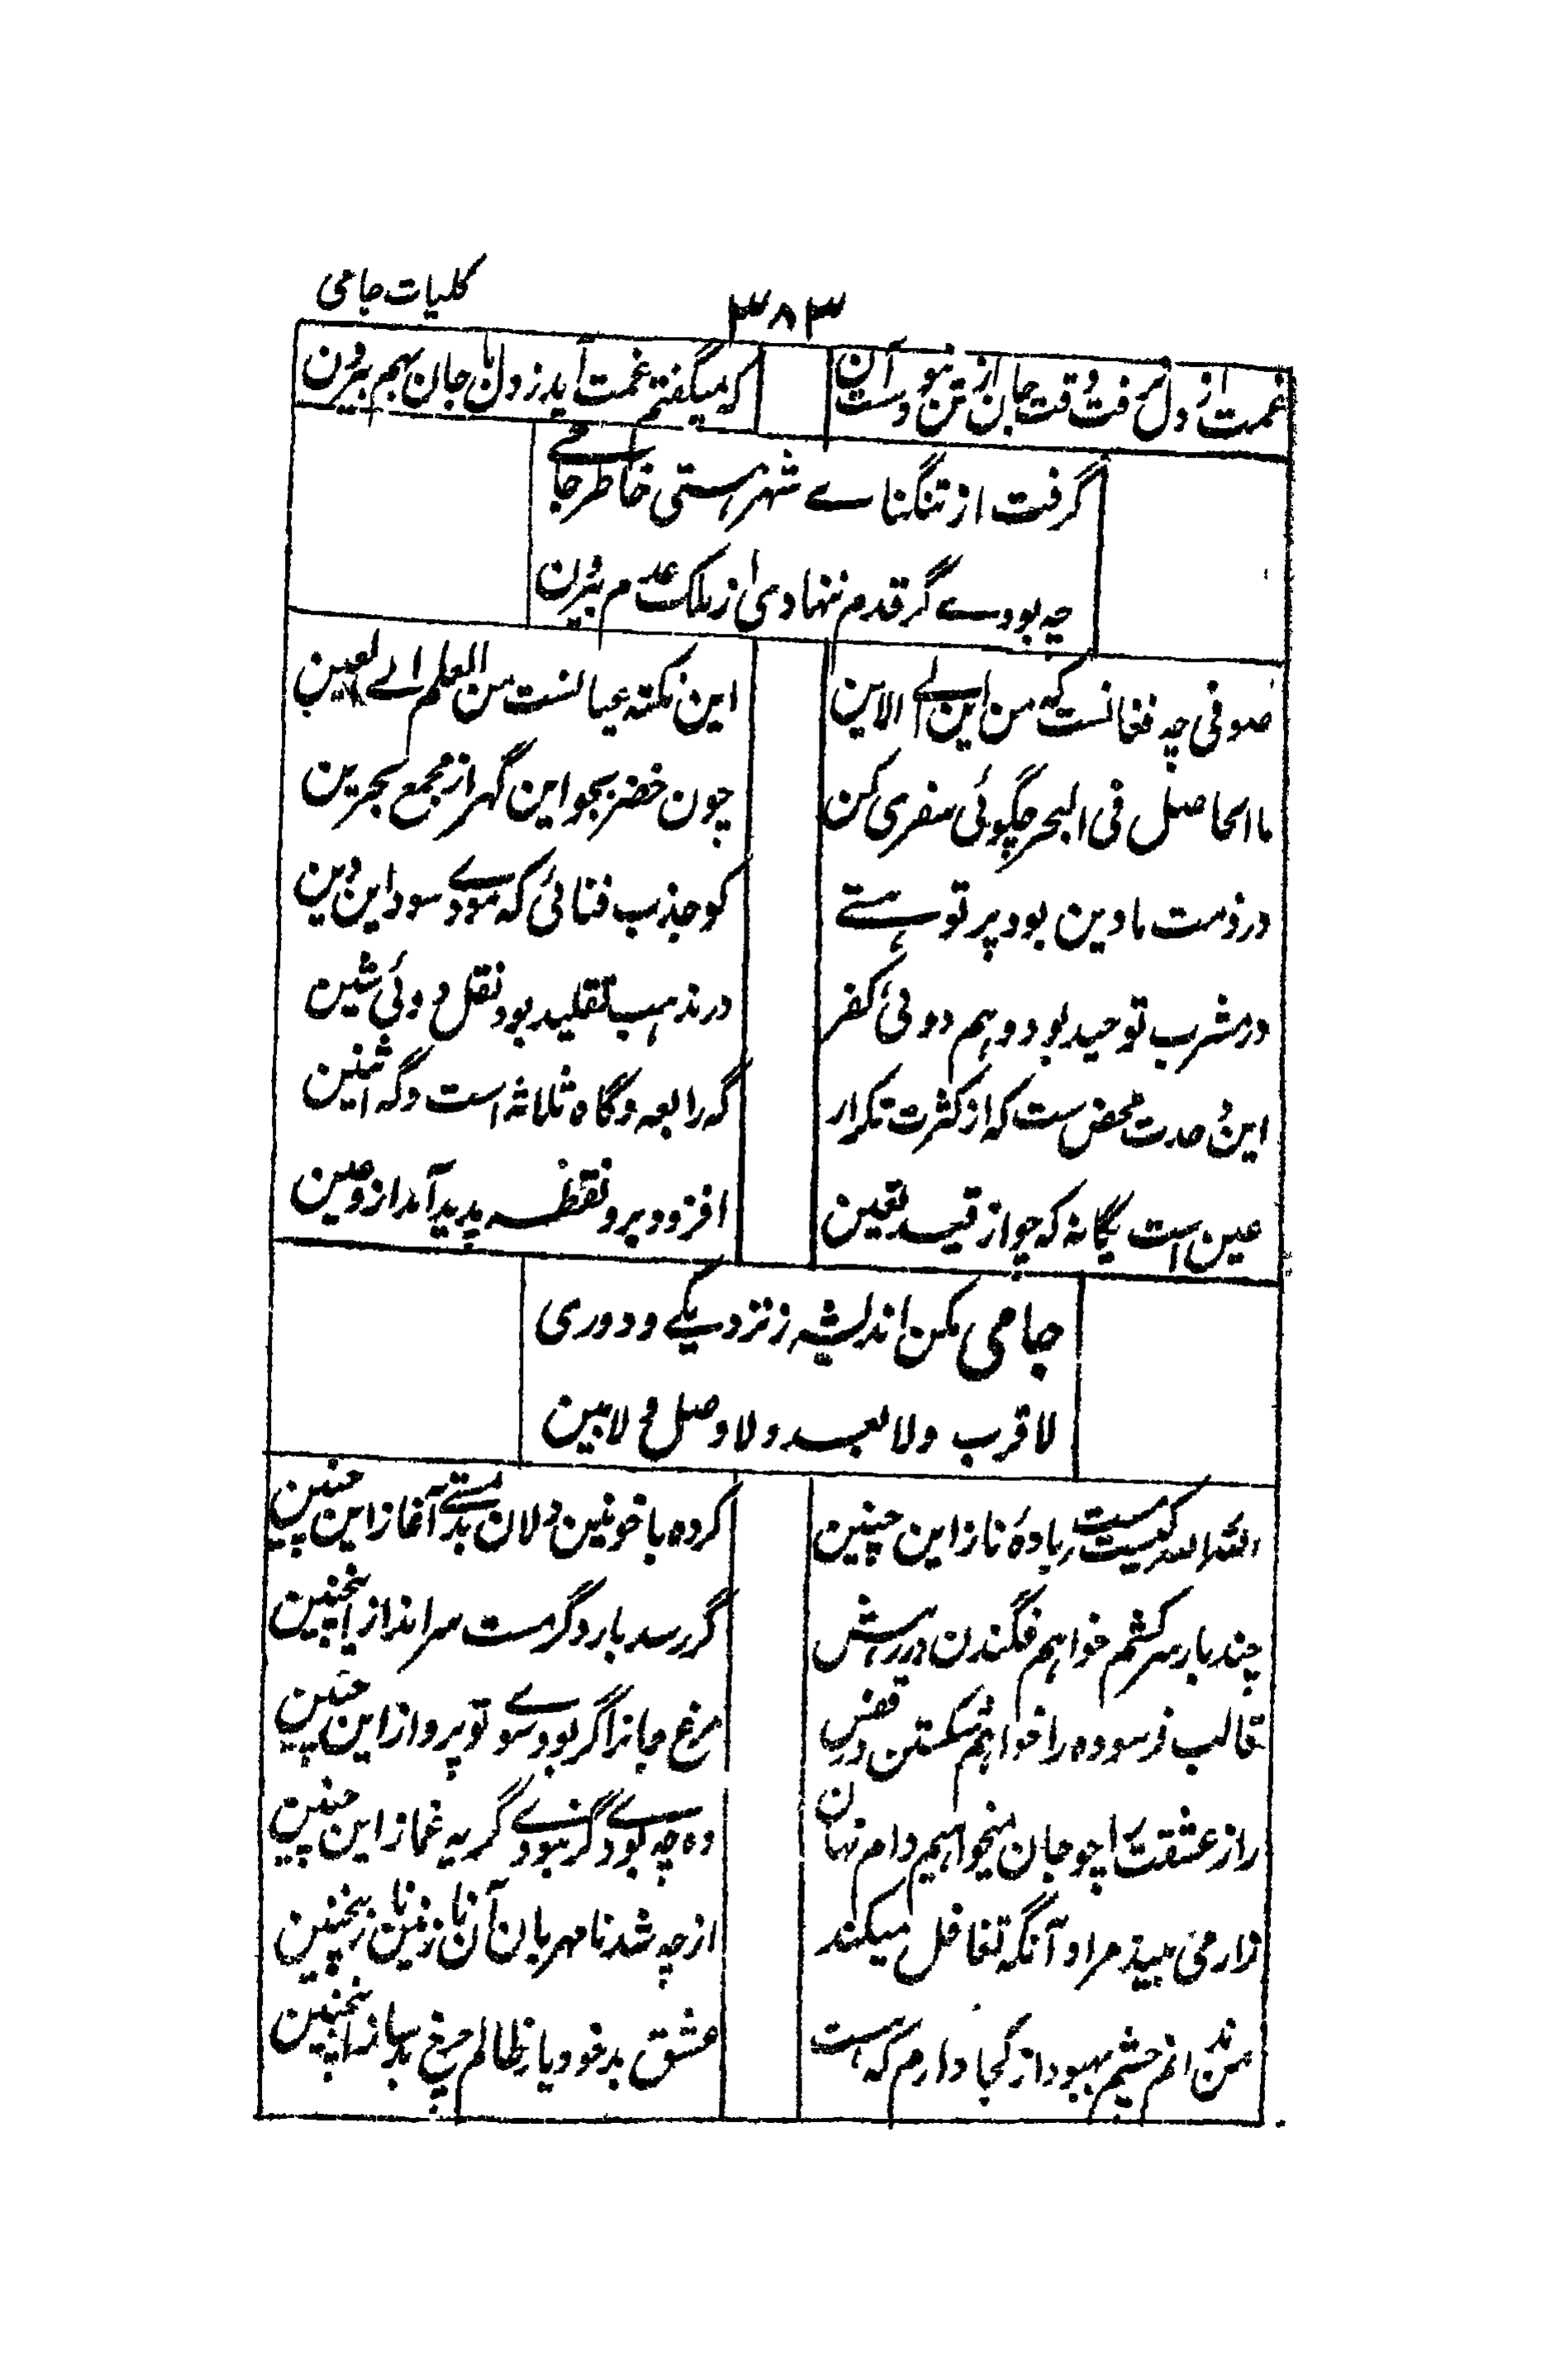 کلیات جامی
۳۸۳
غمت از دل نرفت و وقت جان از تن نبود آن دست
که میگفتم غمت آید ز دل با جان بهم بیرون
گرفت از تنگناے شهر هستی خاطر جامے
چه بودے گر قدم ننهادی از ملک عدم بیرون
صوفی چه فغانست که من این الے الاین
این نکته عیانست من العلم الے العین
ما الحاصل فی البحر چگوئی سفری کن
چون خضر بجو این گهر از مجمع بحرین
در ذمت ما دین بود پرتو هستے
کو جذب فنائی که مودے سود این دین
در مشرب توحید بود وهم دوئی کفر
در مذهب تقلید بود نقل دوئی شین
این وحدت محض ست که از کثرت تکرار
گه رابعه و گاه ثلاثه است و گه اثنین
عین است یگانه که چو از قید تعین
افزود برو نقطه پدید آمد ازو عین
جامی مکن اندیشه ز نزدیکے و دوری
لا قرب ولا بعد ولا وصل و لا بین
الله الله کیست مست باده ناز این چنین
کرده با خونین دلان بد مستے آغاز این چنین
چند بار سر کشم خواهم فگندن در رهش
گر رسد بار دگر مست سرانداز اینچنین
قالب فرسوده را خواهم شکستن در قفس
مرغ جانرا گر بود سوے تو پرواز این چنین
راز عشقت را چو جان میخواهم دارم نهان
وه چه بودے گر نبودے گریه غماز این چنین
زار می بیند مرا و آنگه تغافل میکند
از چه شد نا مهربان آن نازنین با ز اینچنین
من ندانم چشم بهبود از کجا دارم که هست
عشق بدخو دیار ظالم چرخ بد ساز اینچنین